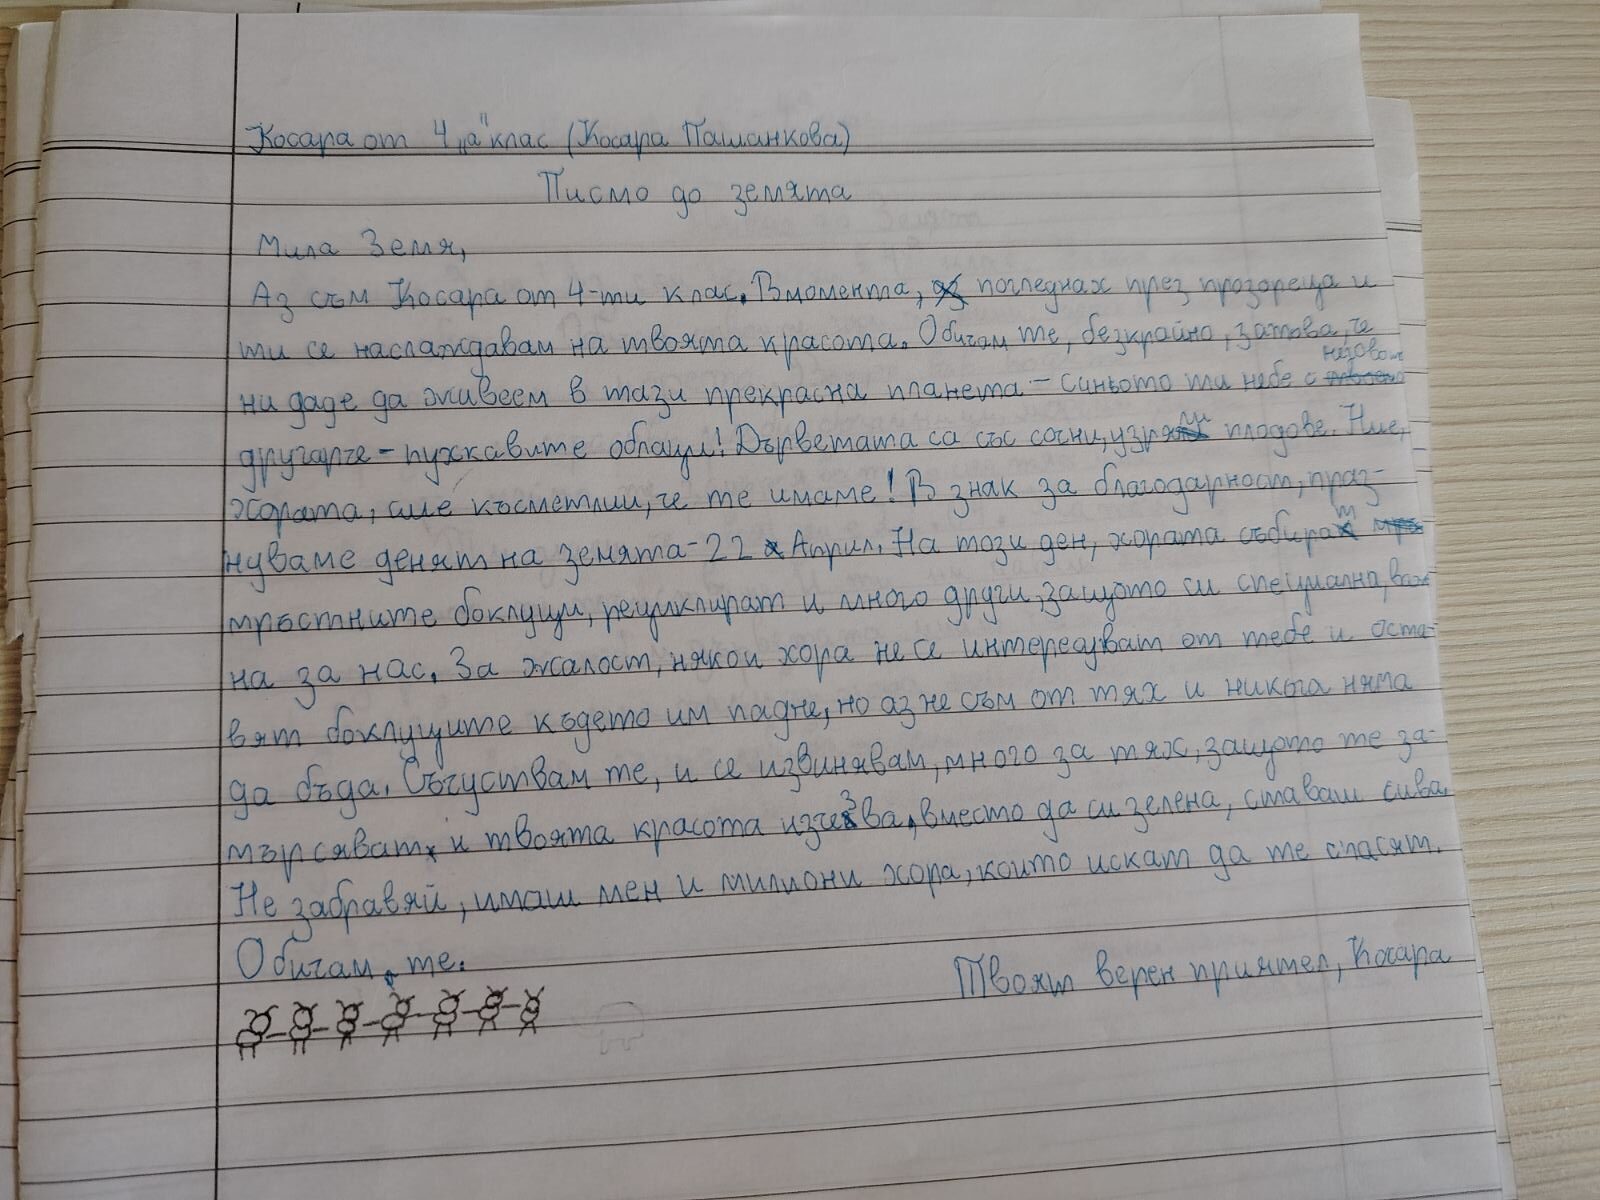 Косара от 4 „а" клас (Косара Пашанкова)
Писмо до земята
Мила Земя,
Аз съм Косара от 4-ти клас. В момента, погледнах през прозореца и
ти се наслаждавам на твоята красота. Обичам те, безкрайно, затова, че
ни даде да живеем в тази прекрасна планета - синьото ти небе с неговото
другарче - пухкавите облаци! Дърветата са със сочни, узрели плодове. Ние,
хората, сме късметлии, че те имаме! В знак за благодарност, праз-
нуваме денят на земята - 22 Април. На този ден, хората събират
мръстните боклуци, рециклират и много други, защото си специална, важ
на за нас. За жалост, някои хора не се интересуват от тебе и оста-
вят боклуците където им падне, но аз не съм от тях и никога няма
да бъда. Съчуствам те, и се извинявам, много за тях, защото те за-
мърсяват и твоята красота изчезва, вместо да си зелена, ставаш сива.
Не забравяй, имаш мен и милиони хора, които искат да те спасят.
Обичам те.
Твоят верен приятел, Косара